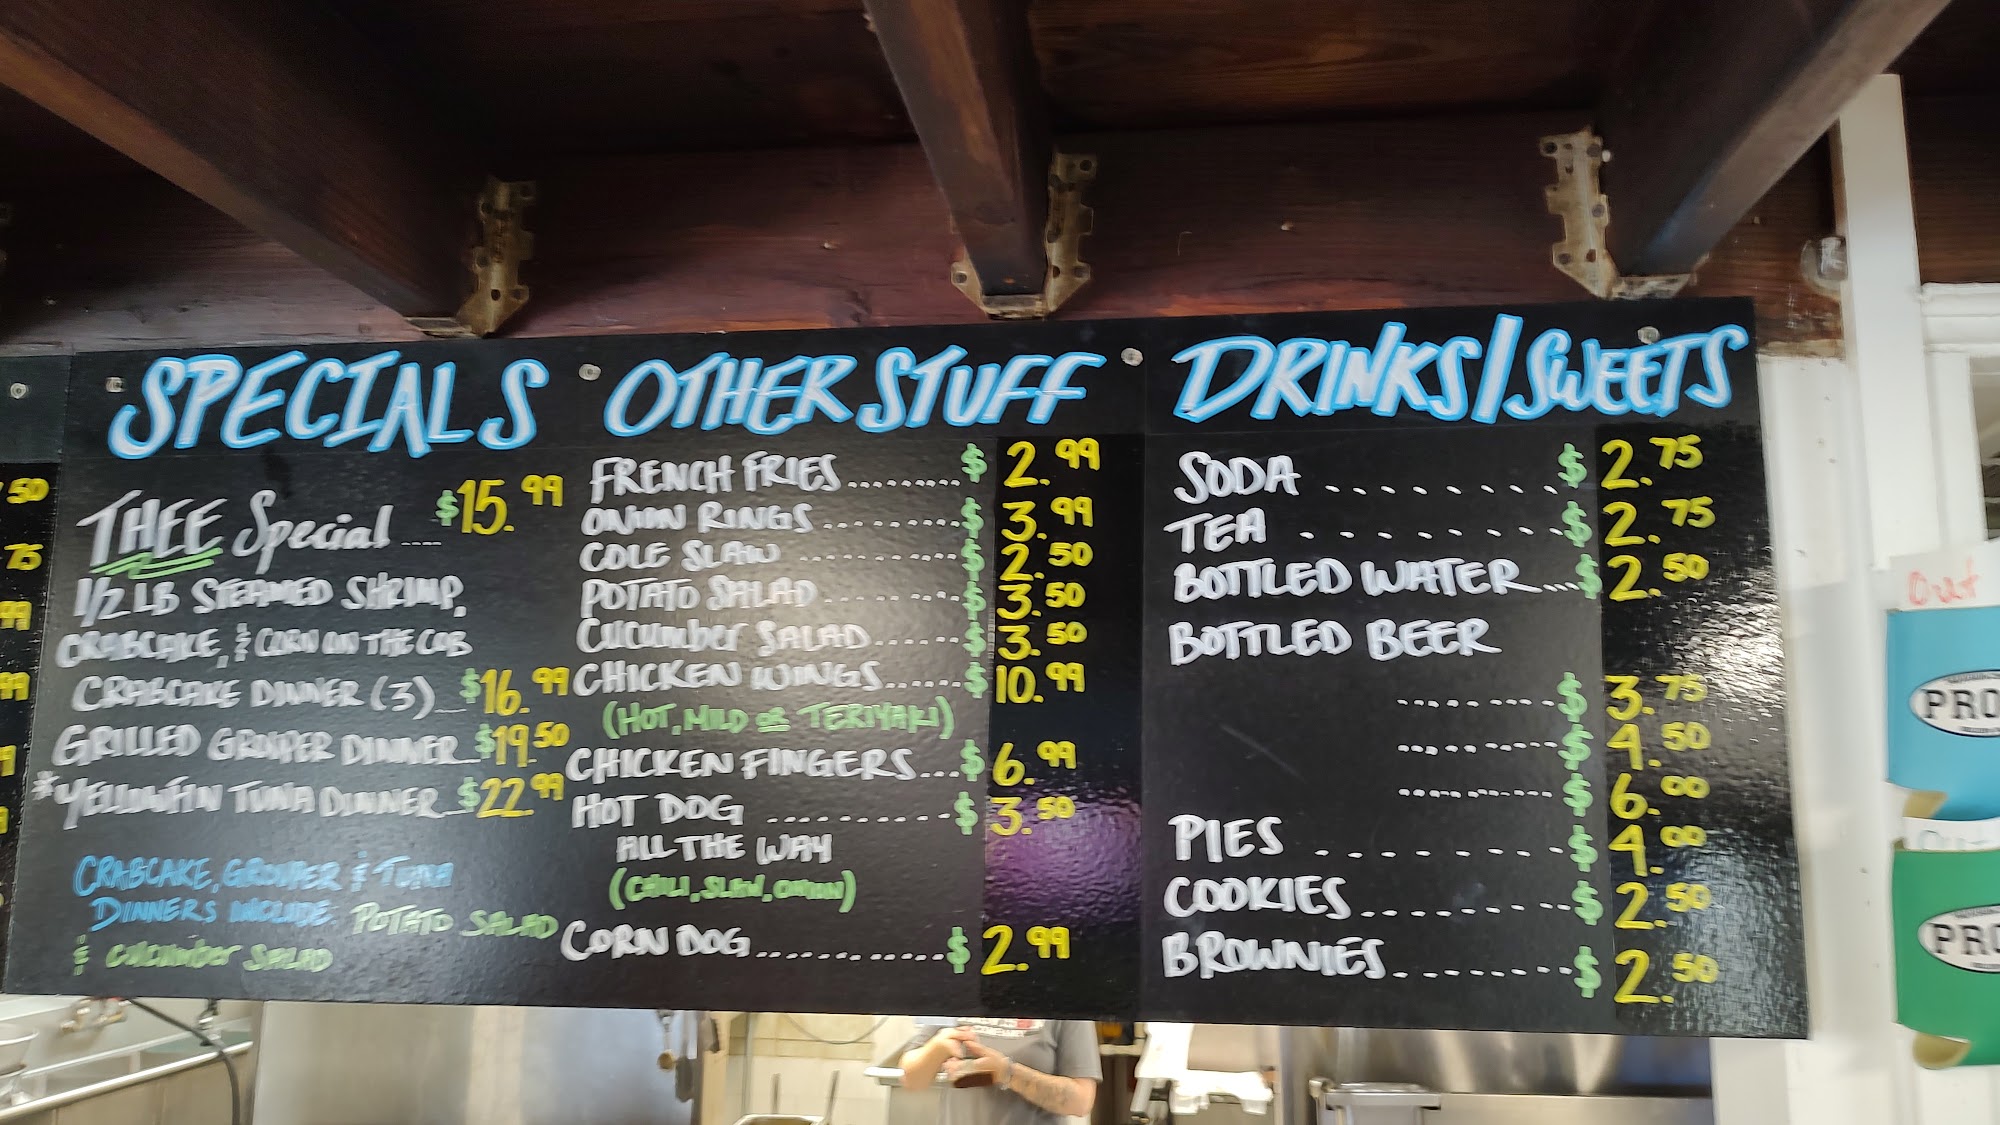 50
75
99
99
SPECIALS
THEE Special .... $15.99
1/2 LB STEAMED SHRIMP,
CRABCAKE, & CORN ON THE COB
CRABCAKE DINNER (3) $16.99
GRILLED GROUPER DINNER $19.50
*YELLOWFIN TUNA DINNER $22.99
CRABCAKE, GROUPER & TUNA
DINNERS INCLUDE POTATO SALAD
& CUCUMBER SALAD
OTHER STUFF
FRENCH FRIES ......... $2.99
ONION RINGS .......... $3.99
COLE SLAW ............ $2.50
POTATO SALAD ......... $3.50
CUCUMBER SALAD ...... $3.50
CHICKEN WINGS ...... $10.99
(HOT, MILD OR TERIYAKI)
CHICKEN FINGERS ... $6.99
HOT DOG .......... $3.50
ALL THE WAY
(CHILI, SLAW, ONION)
CORN DOG ............ $2.99
DRINKS/SWEETS
SODA ......... $2.75
TEA .......... $2.75
BOTTLED WATER ... $2.50
BOTTLED BEER
......... $3.75
......... $4.50
......... $6.00
PIES ......... $4.00
COOKIES ........ $2.50
BROWNIES ....... $2.50
Out
PRO
PRO